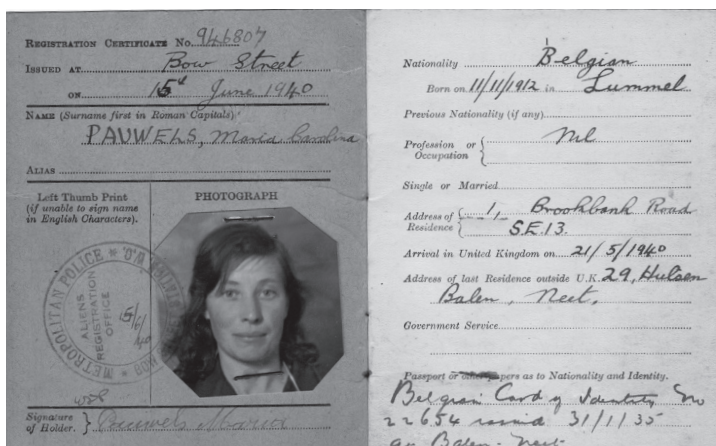 REGISTRATION CERTIFICATE No. 946807
ISSUED AT Bow Street
ON 15th June 1940
NAME (Surname first in Roman Capitals)
PAUWELS, Maria Carolina
ALIAS
Left Thumb Print
(if unable to sign name
in English Characters).
PHOTOGRAPH
METROPOLITAN POLICE
ALIENS
REGISTRATION
OFFICE
15/6/40
BOW
Signature
of Holder.
Pauwels Maria
Nationality Belgian
Born on 11/11/1912 in Lummel
Previous Nationality (if any)
Profession or
Occupation
Nil
Single or Married
Address of
Residence
1, Brookbank Road
S.E.13.
Arrival in United Kingdom on 21/5/1940
Address of last Residence outside U.K. 29, Hulsen
Balen, Neet.
Government Service
Passport or other papers as to Nationality and Identity.
Belgian Card of Identity No
22654 31/1/35
Balen - Neet